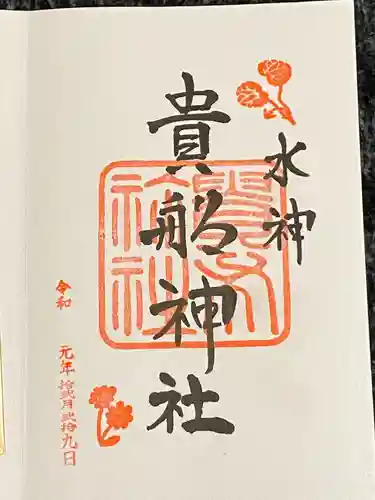 水神
貴船神社
令和元年拾弐月弐拾九日